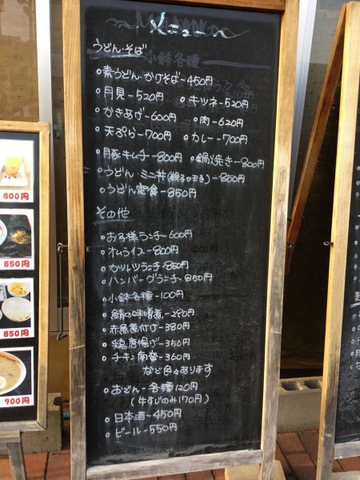 メニュー
うどん・そば
小鉢各種
素うどん・かけそば-450円
月見-520円 キツネ-520円
かきあげ-600円 肉-620円
天ぷら-700円 カレー-700円
豚キムチ-800円 鍋焼き-800円
うどん・ミニ丼-850円
うどん定食-850円
その他
お子様ランチ-600円
オムライス-800円
カツルツランチ-850円
ハンバーグランチ-850円
小鉢各種-100円
鯖の味噌煮-280円
赤魚煮付け-380円
鶏唐揚げ-350円
チキン南蛮-360円
など色々あります
おでん-各種120円
(牛すじのみ170円)
日本酒-450円
ビール-550円
600円
850円
850円
700円